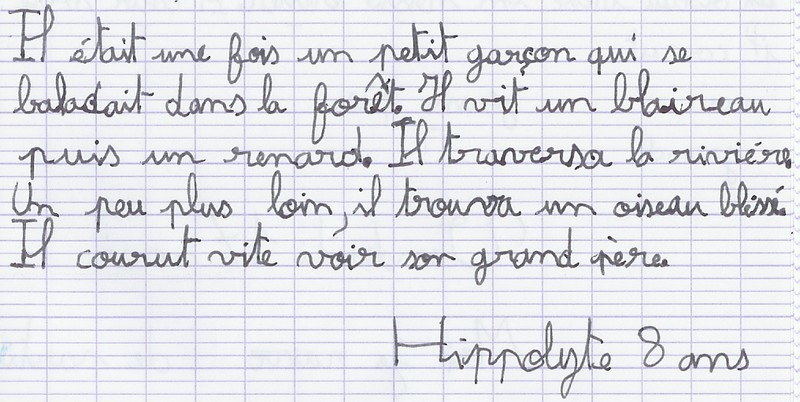 Il était une fois un petit garçon qui se
baladait dans la forêt. Il vit un blaireau
puis un renard. Il traversa la rivière.
Un peu plus loin, il trouva un oiseau blessé.
Il courut vite voir son grand père.
Hippolyte 8 ans